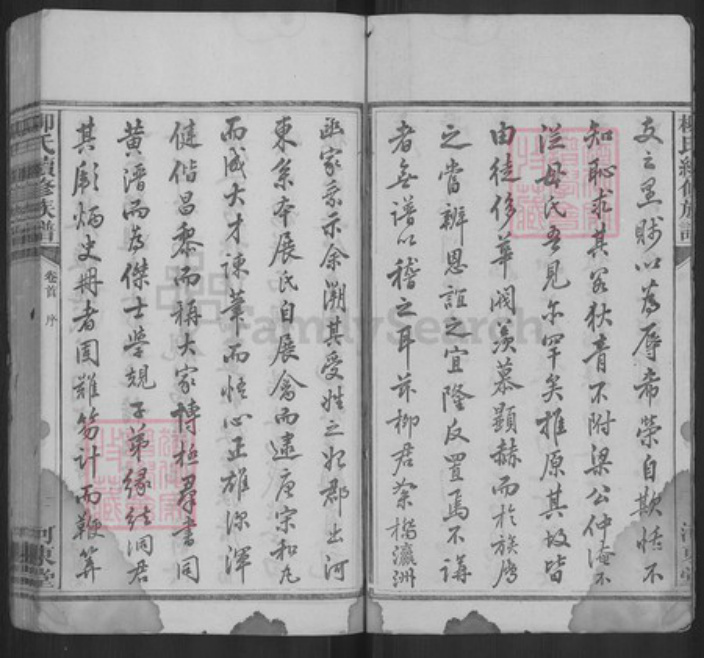 柳氏續修族譜
河東堂
文之異賤以為辱希榮自欺恬不
知恥求其若狄青不附梁公仲淹不
從母氏吾見亦罕矣推原其故皆
由徒侈華閥羨慕顯赫而於族間
之當辨恩誼之宜隆反置焉不講
者無譜以稽之耳茲柳君榮楊瀛洲
函家乘示余溯其受姓之始郡出河
東系本展氏自展禽而逮唐宋和丸
而成大才諫筆而悟心正雄深渾
健偕昌黎而稱大家博極羣書同
黃溍而為傑士學規子弟緣結洞君
其彪炳史冊者固難芻計而鞭算
柳氏續修族譜
卷首 序
河東堂
FamilySearch